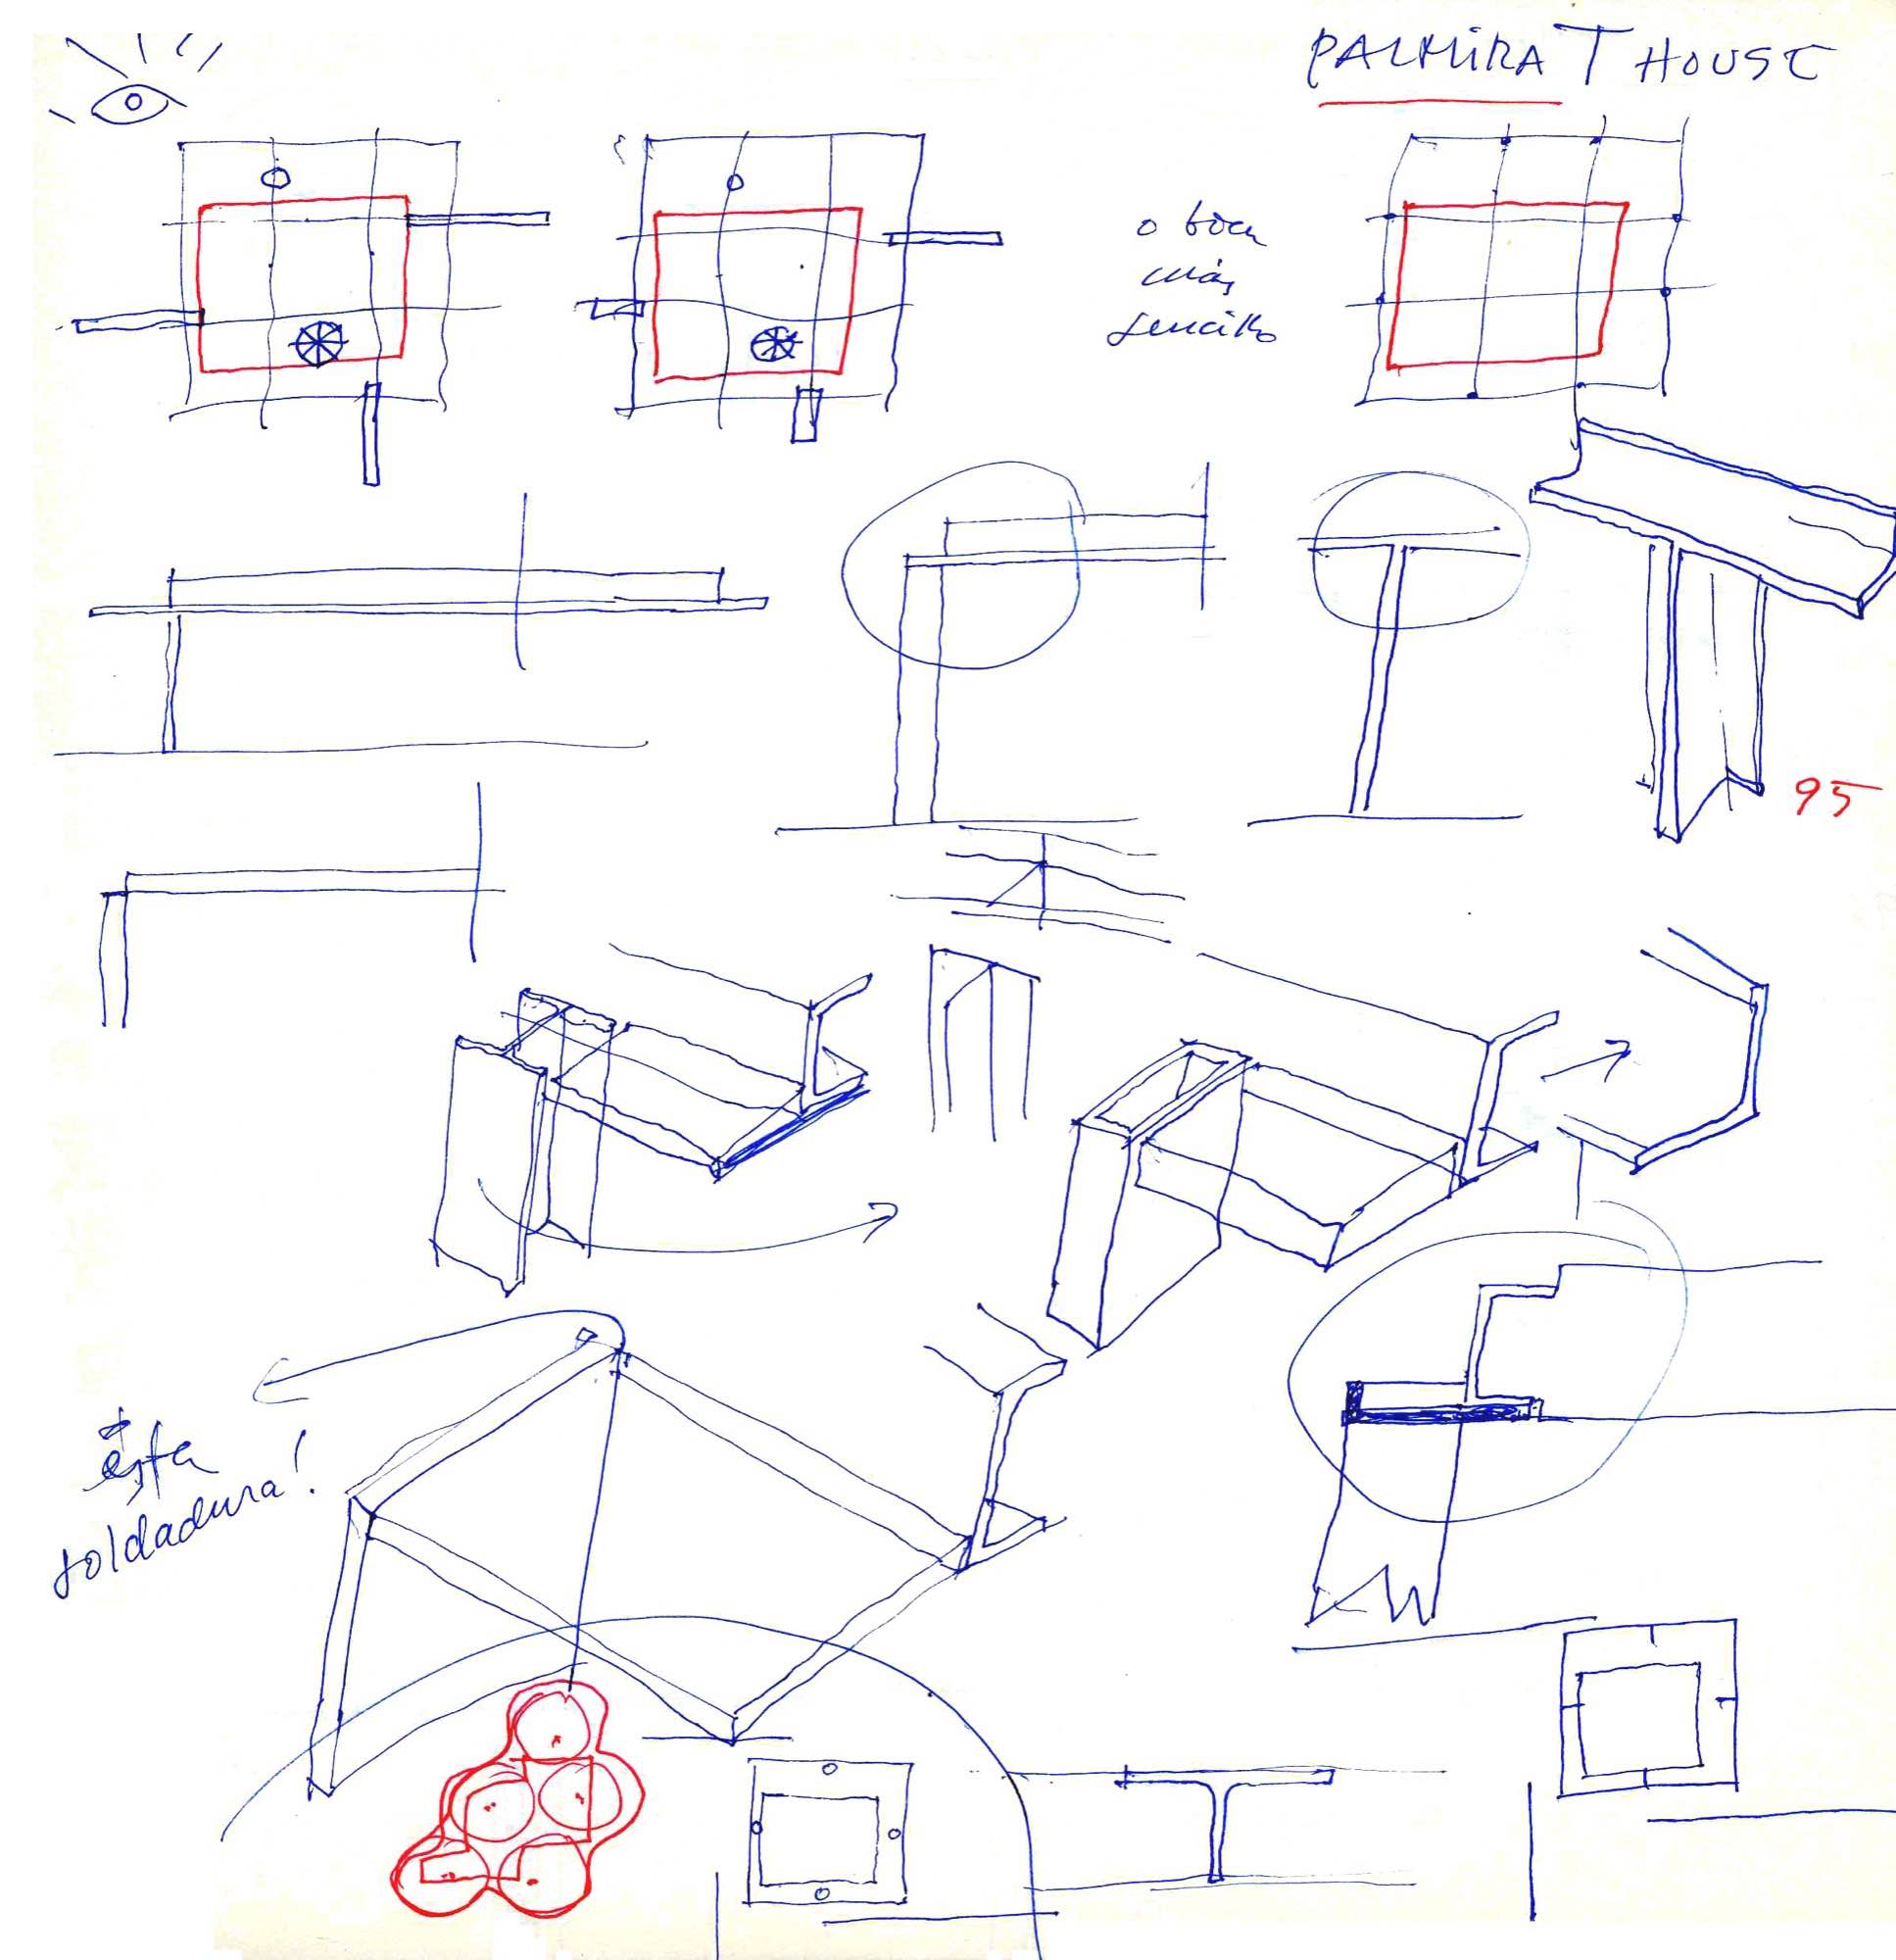 PALMIRA T HOUSE
o bien
más
sencillo
95
ésta
soldadura!